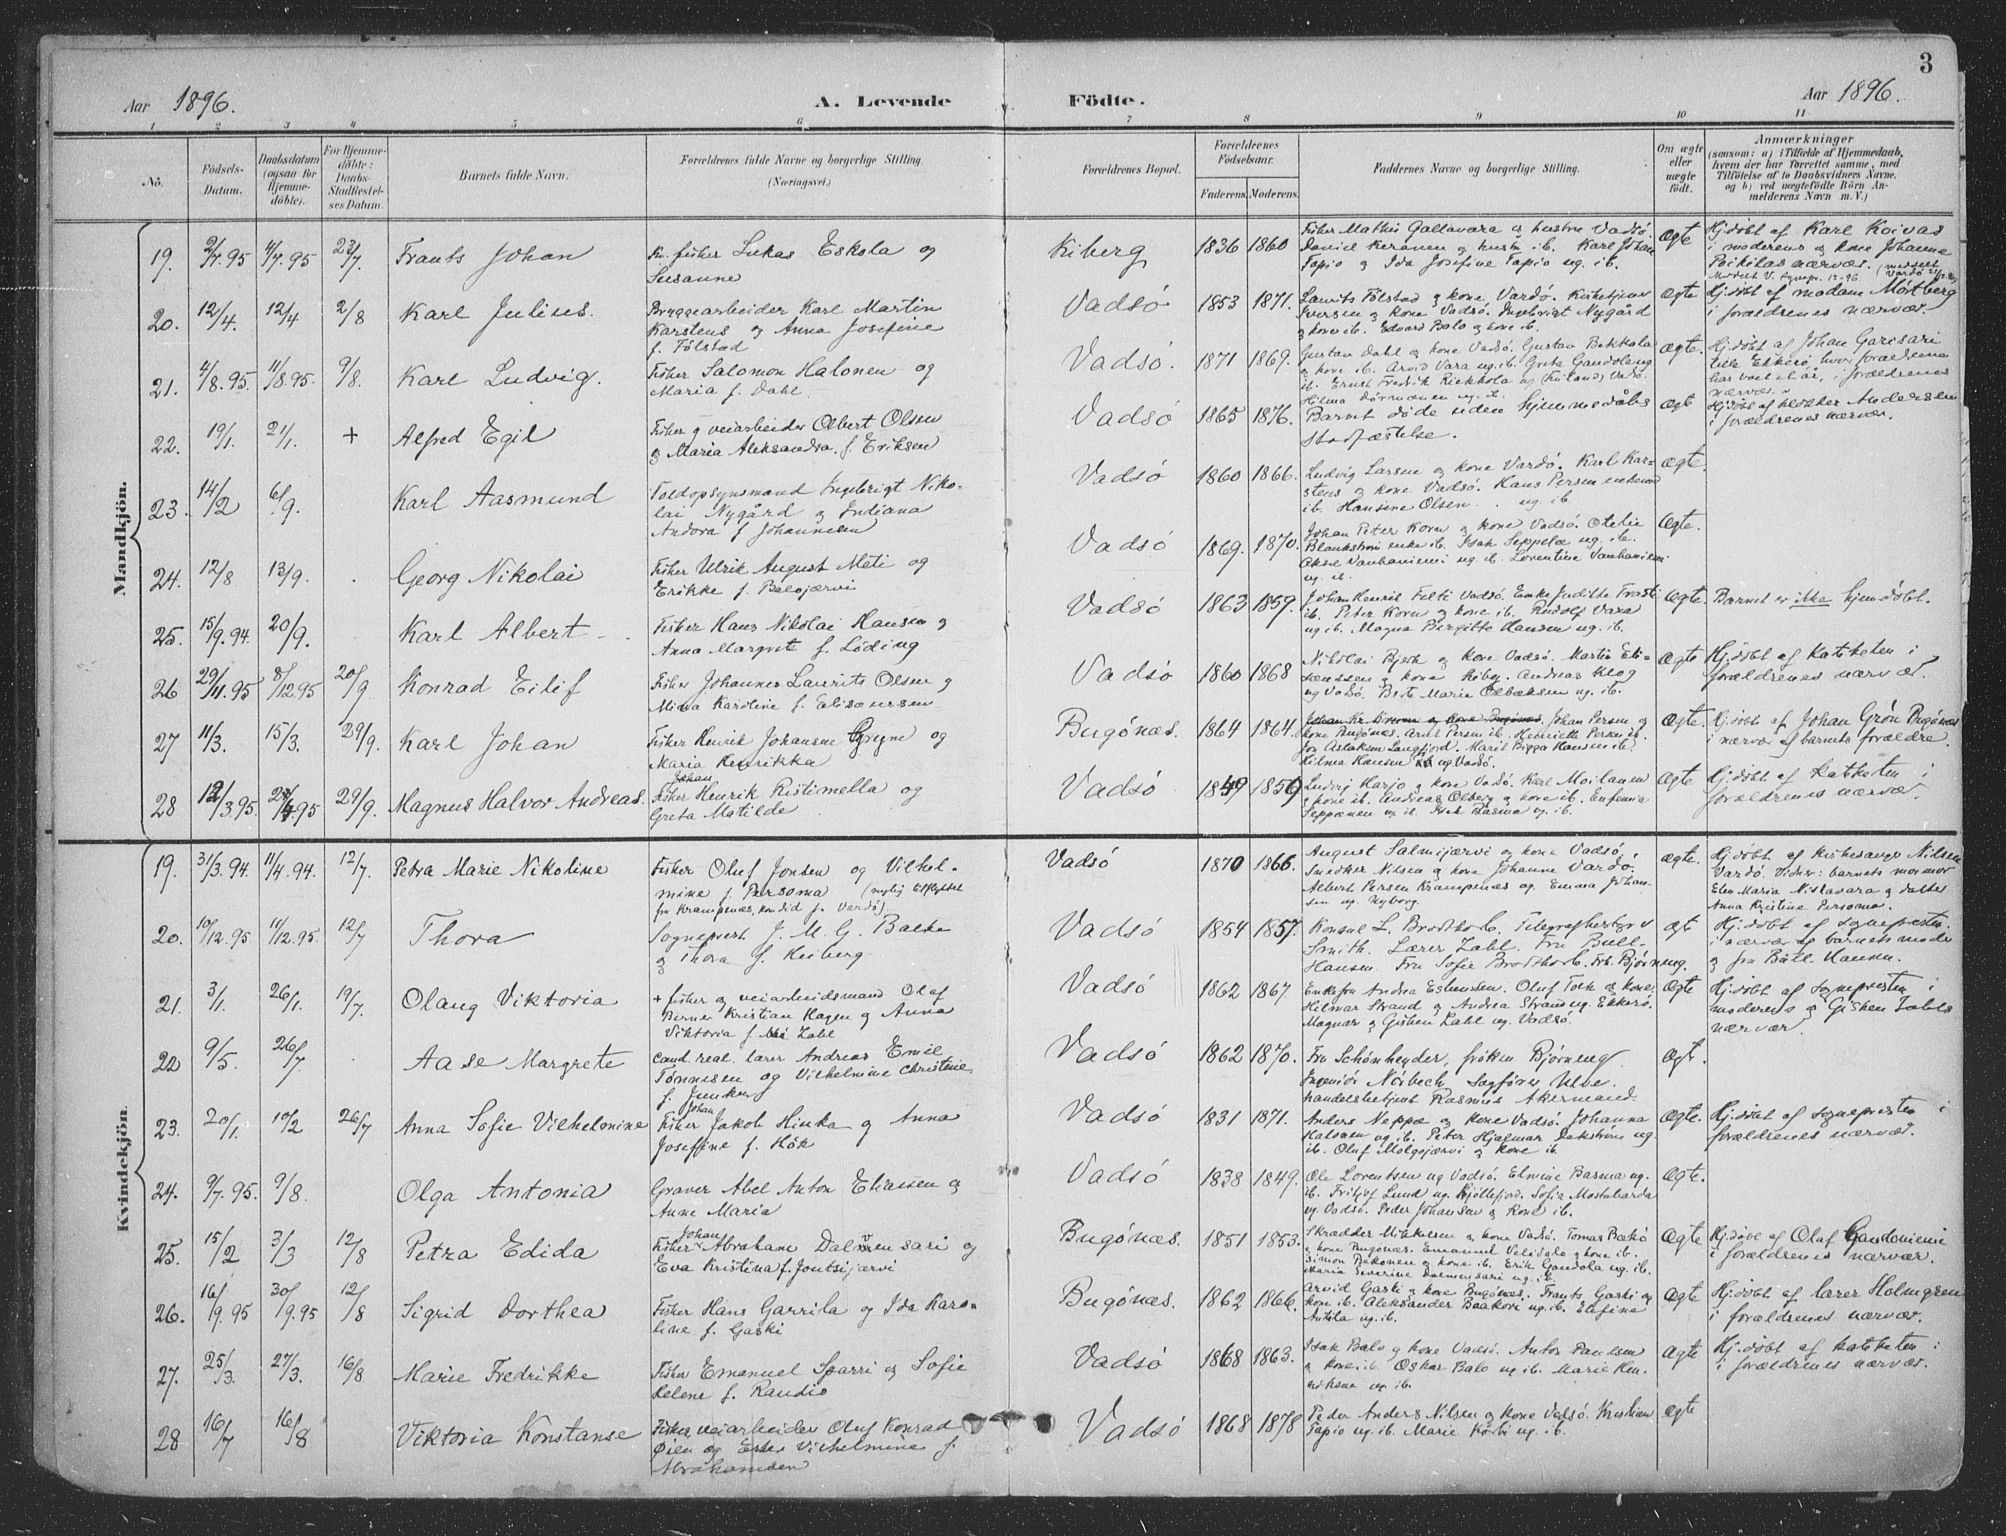 3
Aar 1896.
A. Levende
Födte.
Aar 1896.
1 2 3 4 5 6 7 8 9 10 11
No.
Födsels-
Datum.
Daabsdatum
(ogsaa for
Hjemme-
döbte).
For Hjemme-
döbte:
Daabs-
Stadfæstel-
ses Datum.
Barnets fulde Navn.
Forældrenes fulde Navne og borgerlige Stilling.
(Næringsvei.)
Forældrenes Bopæl.
Forældrenes
Födselsaar.
Faderens. Moderens.
Faddernes Navne og borgerlige Stilling.
Om ægte
eller
uægte
födt.
Anmærkninger
(saasom: a) i Tilfælde af Hjemmedaab,
hvem der har forrettet samme, med
Tilföielse af to Daabsvidners Navne,
og b) ved uægtefödte Börn An-
melderens Navn m. V.)
Mandkjön.
19. 2/7.95 4/7.95 23/7 Frants Johan
fisker Lukas Eskola og
Susanne
Kiberg 1836 1860
Fisker Mathis Gallavara og hustru Vadsö.
Daniel Keranen og hustru ib. Karl Johan
Tapio og Ida Josefine Tapio ug. ib.
Ægte
Hj.döbt af Karl Koivas
i moderens og kone Johanne
Poikilas nærvær.
20. 12/4. 12/4 2/8 Karl Julius.
Bryggearbeider Karl Martin
Karstens og Anna Josefine
f. Tölstad
Vadsö 1853 1871.
Laurits Tölstad og kone, Vardö. Kirketjener
Iversen og kone Vadsö. Ingebrigt Nygård
og kone ib. Edvard Balo og kone ib.
Ægte
Hj.döbt af madam Mörtberg
i forældrenes nærvær.
21. 4/8.95. 11/8.95. 9/8. Karl Ludvig.
Fisker Salomon Halonen og
Maria f. Dahl.
Vadsö. 1871 1869.
Gustav Dahl og kone Vadsö. Gustav Bekkala
og kone ib. Arvid Vara ug. ib. Greta Gandola ug
ib. Ernst Fredrik Riekkola ug (Finland) Vadsö.
Ægte.
Hj.döbt af Johan Garisari
forældrene
har vært i år, i forældrenes
nærvær.
22. 19/1. 21/1. + Alfred Egil
Fisker og veiarbeider Albert Olsen
og Maria Aleksandra f. Eriksen
Vadsö 1865 1876.
Barnet döde uden hjemmedåbs
stadfæstelse.
Ægte
Hj.döbt af klokker Andersen
i forældrenes nærvær.
23. 14/2 6/9. Karl Aasmund
Toldopsynsmand Ingebrigt Niko-
lai Nygård og Indiana
Andora f. Johannesen
Vadsö 1860 1866.
Ludvig Larsen og kone Vardö. Karl Kar-
stens og kone Vadsö. Hans Persen enkemand
ib. Hansine Olsen ug. ib.
Ægte.
24. 12/8 13/9. Georg Nikolai
Fisker Ulrik August Meti og
Erikke f. Palojærvi
Vadsö 1869. 1870.
Johan Peter Korn og kone Vadsö. Otelie
Blankström enke ib. Isak Seppelæ ug. ib.
Oksel Vanhaniemi ug. ib. Lorentine Vanhaniemi
ug. ib.
Ægte.
25. 15/9.94. 20/9. Karl Albert
Fisker Hans Nikolai Hansen og
Anna Margrete f. Löding
Vadsö 1863 1859.
Johan Henrik Felti Vadsö. Enke Judithe Frosti
ib. Peter Korn og kone ib. Rudolf Vara
ug. ib. Magna Bergitte Hansen ug. ib.
Ægte.
Barnet er ikke hjemdöbt.
26 29/11.95 8/12.95 20/9 Konrad Eilif
Fisker Johannes Laurits Olsen og
Mina Karoline f. Elisæussen
Vadsö 1860 1868
Nikolai Bjerk og kone Vadsö. Martin Eli-
sæussen og kone Kiby. Andreas Klog
ug Vadsö. Berte Marie Olbæksen ug. ib.
Ægte
Hj.döbt af Katketen i
forældrenes nærvær.
27 11/3. 15/3. 29/9. Karl Johan
Fisker Henrik Johansen Gryne og
Maria Henrikka
Bugönæs. 1864 1864.
Johan Persen og
kone Bugönæs. Arnt Persen ib. Henriette Persen ib.
Hilma Hansen ug Vadsö.
Ægte.
Hj.döbt af Johan Grön Bugönæs
i nærvær af barnets forældre.
28 12/3.95. 29/4.95 29/9. Magnus Halvor Andreas.
Johan
Fisker Henrik Ristimella og
Greta Matilde
Vadsö 1849 1859
Ludvig Harjo og kone Vadsö. Karl Moilanen
og kone ib. Andreas Olberg og kone ib. Eufemia
Seppænen ug. ib. Isak Basma ug. ib.
Ægte
Hj.döbt af Katketen i
forældrenes nærvær.
Kvindekjön.
19. 31/3.94. 11/4.94. 12/7. Petra Marie Nikoline
Fisker Oluf Jonsen og Vilhel-
mine f. Persoma (nylig tilflyttet
fra Krampenæs, kom did fr. Vardö)
Vadsö 1870 1866.
August Salmijærvi og kone Vadsö.
Snedker Nilsen og kone Johanne Vardö.
Albert Persen Krampenæs ug. Emma Johan-
sen ug. Nyborg.
Ægte.
Hj.döbt af kirkesanger Nilsen
Vardö. Vidner: barnets mormor
Elen Maria Nislavara og datter
Anna Kristine Persoma.
20. 10/12.95. 11/12.95. 12/7 Thora
Sogneprest J. M. G. Balke
og Thora f. Heiberg
Vadsö 1854 1857.
Konsul L. Brodtkorb. Telegrafbestyrer
Smith. Lærer Zahl. Fru Bull-
Hansen. Fru Sofie Brodtkorb. Frk. Björneng.
Ægt
Hj.döbt af sognepresten
i nærvær af barnets moder
og fru Bull Hansen.
21. 3/1. 26/1. 19/7. Olaug Viktoria
+ fisker og veiarbeidsmand Olaf
Berner Kristian Hagen og Anna
Viktoria f. Zahl
Vadsö 1862 1867.
Enkefru Andrea Esbensen. Oluf Toth og kone,
Hilmar Strand og Andrea Strand ug. Ekkerö.
Magnar og Gisken Zahl ug. Vadsö.
Ægte
Hj.döbt af sognepresten i
moderens og Gisken Zahls
nærvær.
22 9/5. 26/7 Aase Margrete
Cand. real. lærer Andreas Emil
Tönnesen og Vilhelmine Christine
f. Juncker
Vadsö 1862 1870.
Fru Schönheyder, fröken Björneng
Ingeniör Nörbech, Sagförer Ulve.
Handelsbetjent Rasmus Akermand.
Ægt.
23. 20/1. 10/2 26/7 Anna Sofie Vilhelmine
Johan
Fisker Jakob Hinka og Anna
Josefine f. Hök
Vadsö 1831 1871.
Anders Neppæ og kone Vadsö. Johanna
Halonen ug. ib. Peter Hjalmar Dækström ug.
ib. Oluf Molgojærvi og kone ib
Ægte.
Hj.döbt af sognepresten i
forældrenes nærvær.
24. 9/7.95. 9/8. Olga Antonia
Graver Abel Anton Eliassen og
Anne Maria
Vadsö 1838 1849.
Ole Lorentsen ug Vadsö. Elmine Basma ug.
ib. Fritjof Lund ug. Kjöllefjord. Sofia Mostaharda
ug. Vadsö. Peder Johansen og kone ib.
Ægte.
25. 15/2 3/3 12/8 Petra Edida
Johan
Fisker Abraham Dalmensari og
Eva Kristina f. Jontsijærvi
Bugönæs. 1851 1853.
Skrædder Mikkelsen og kone Vadsö. Tomas Bækö
og kone Bugönæs. Emanuel Velisalo og kone ib.
Simon Bækonen og kone ib. Erik Gandola ug. ib.
Maria Severine Dalmensari ug. ib
Ægte
Hj.döbt af Olaf Gandoniemi
i forældrenes nærvær.
26. 16/9.95 30/9.95 12/8 Sigrid Dorthea
Fisker Hans Garrila og Ida Karo-
line f. Gaski
Bugönæs. 1862 1866.
Arvid Gaski og kone Bugönæs. Frants Gaski og
kone ib. Aleksander Baakori ug. ib. Elefine
Anttila ug. ib.
Ægte
Hj.döbt af lærer Holmgren
i forældrenes nærvær.
27. 25/3. 27/3. 16/8 Marie Fredrikke
Fisker Emanuel Sparri og Sofie
Helene f. Randio
Vadsö 1868 1863.
Isak Balo og kone Vadsö. Anton Paulsen
og kone ib. Oskar Balo ug ib. Marie Hen-
riksen ug. ib.
Ægte
Hj.döbt af katketen i
i forældrenes nærvær.
28 16/7 16/8 Viktoria Konstanse
Fisker, veiarbeider Oluf Konrad
Öien og Ester Vilhelmine f.
Abrahamsen
Vadsö 1868 1878
Peder Anders Nilsen og kone Vadsö. Kristian
Tapio ug. ib. Marie Körbi ug. ib.
Ægte